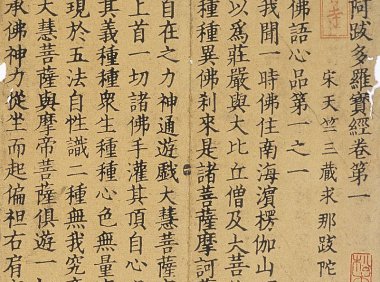 阿跋多羅寶經卷第一
宋天竺三藏求那跋陀
佛語心品第一之一
我聞一時佛住南海濱楞伽山
以為莊嚴與大比丘僧及大菩
種種異佛剎來是諸菩薩摩訶
自在之力神通遊戲大慧菩薩
上首一切諸佛手灌其頂自心
其義種種眾生種種心色無量
現於五法自性識二種無我究
大慧菩薩與摩帝菩薩俱遊一
承佛神力從坐而起偏袒右肩